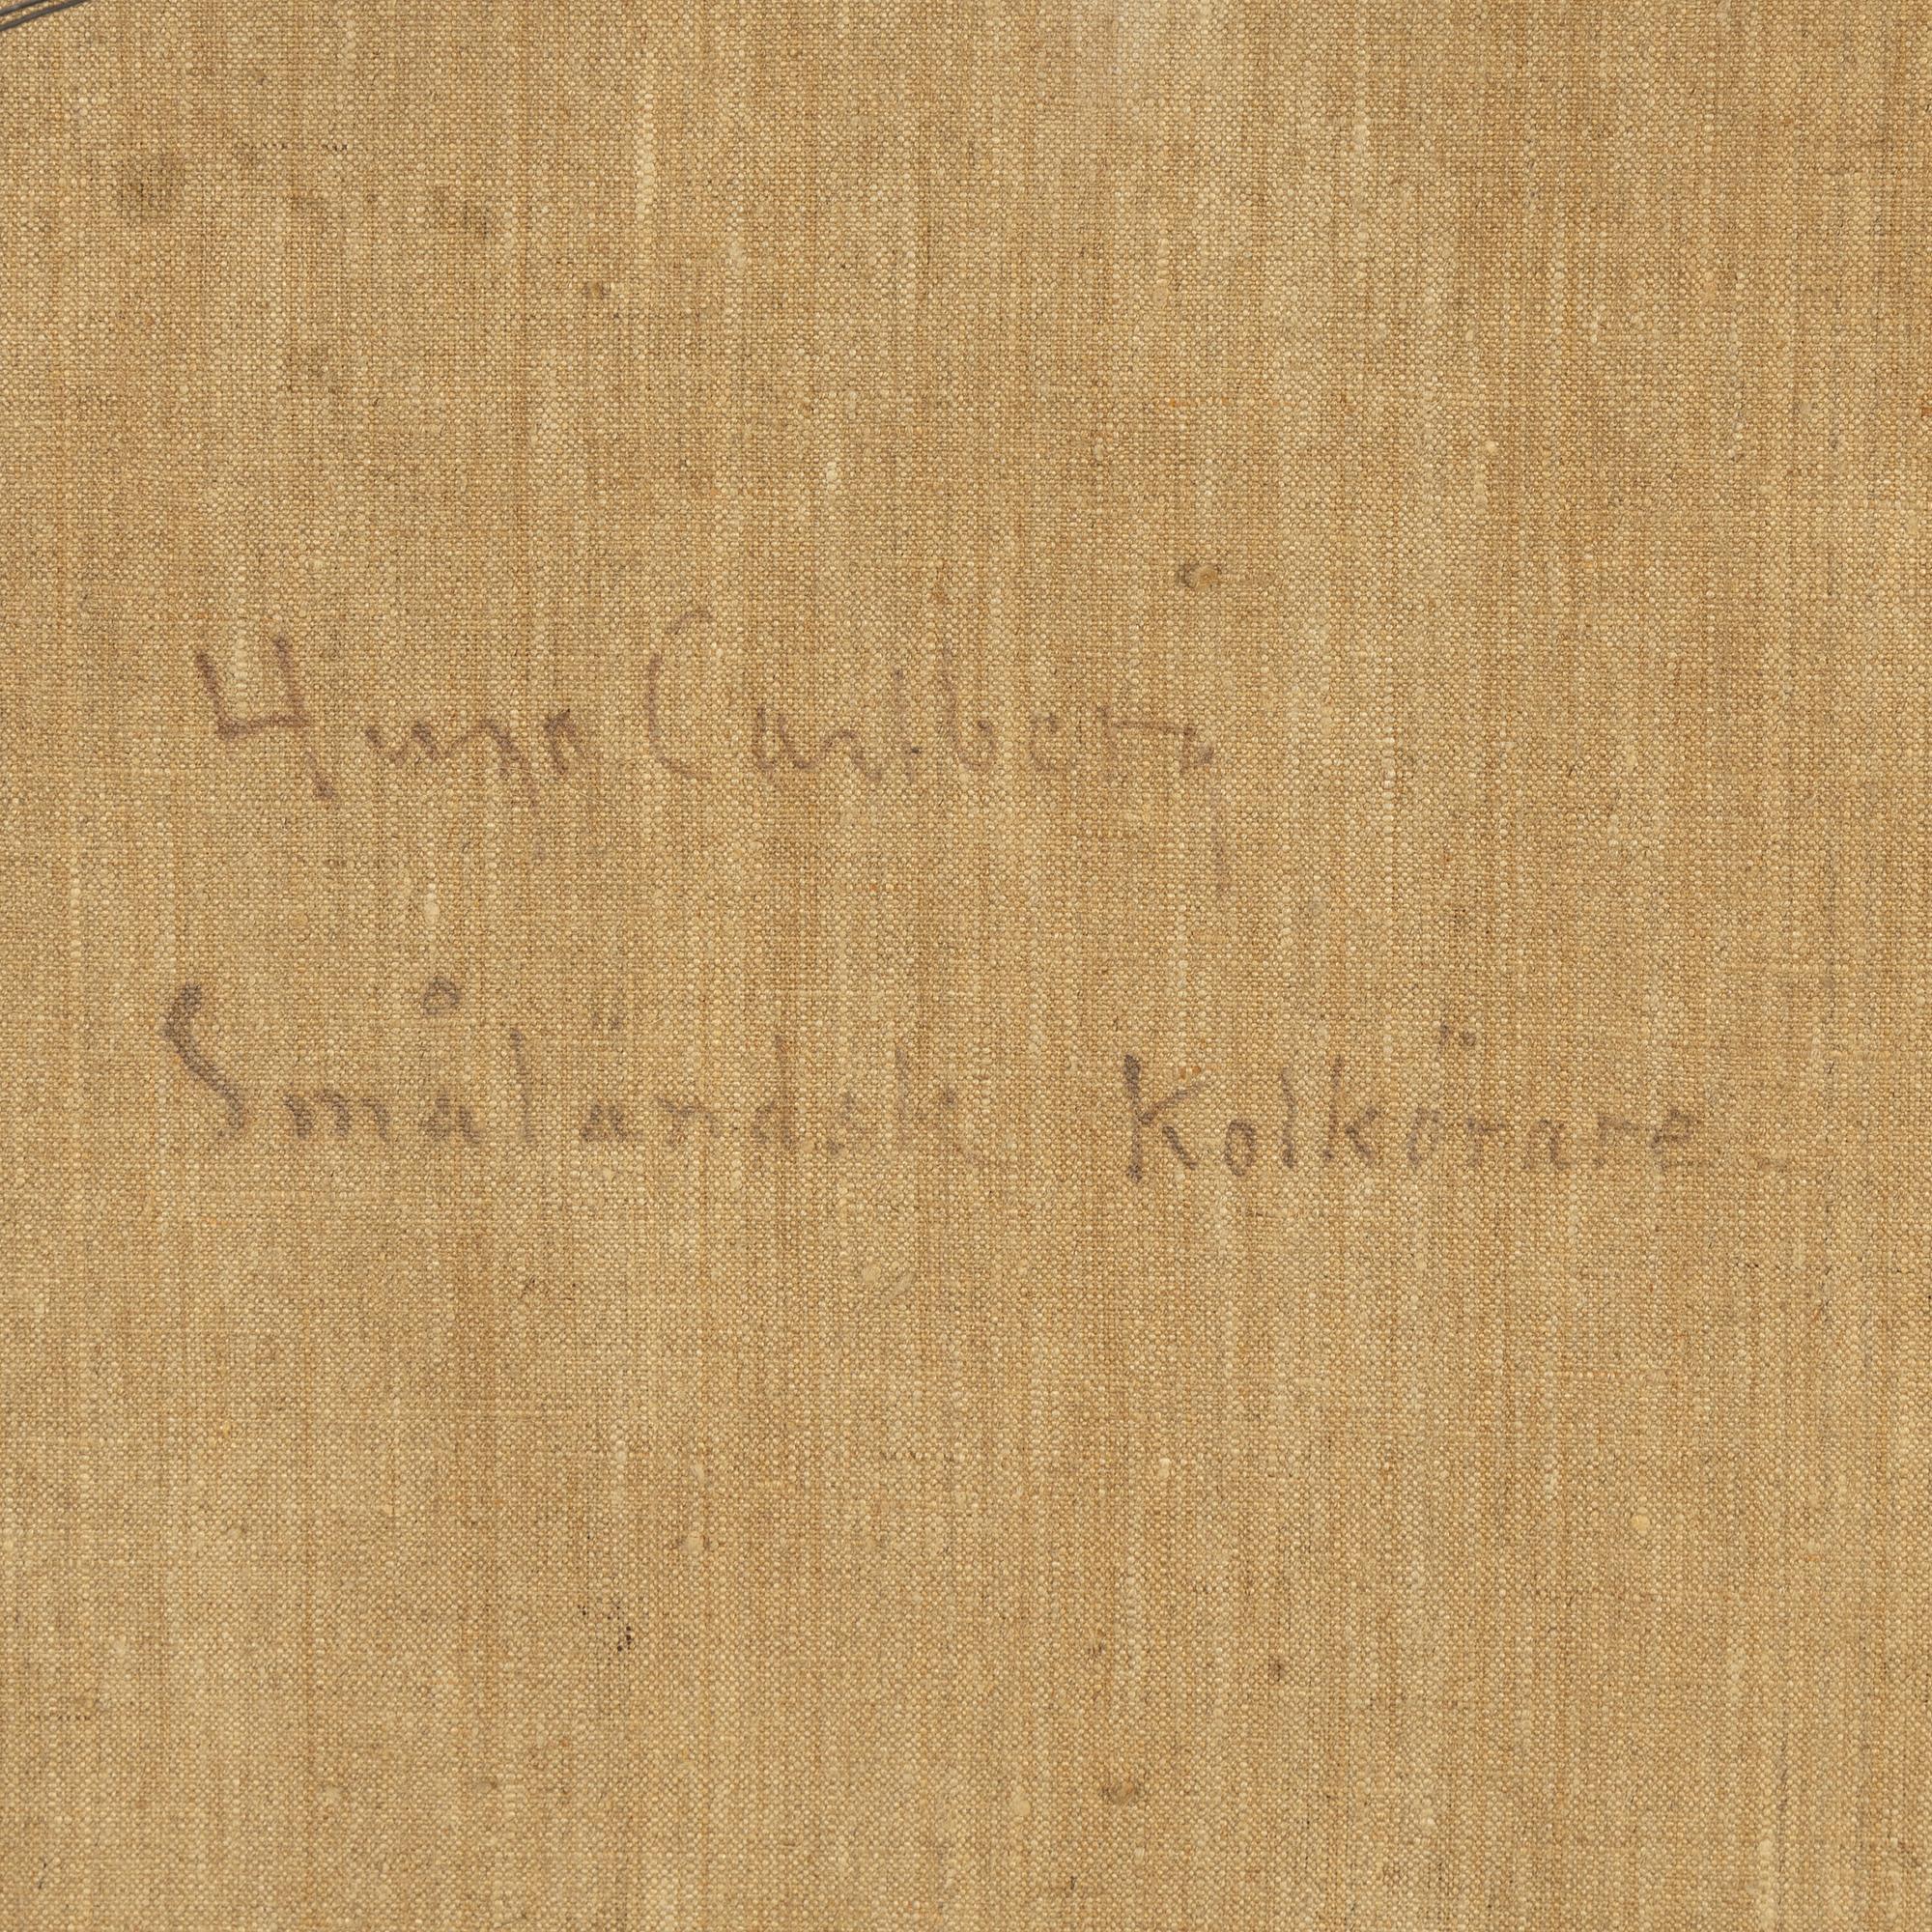 Hugo Carlberg
Småländsk Kolkörare